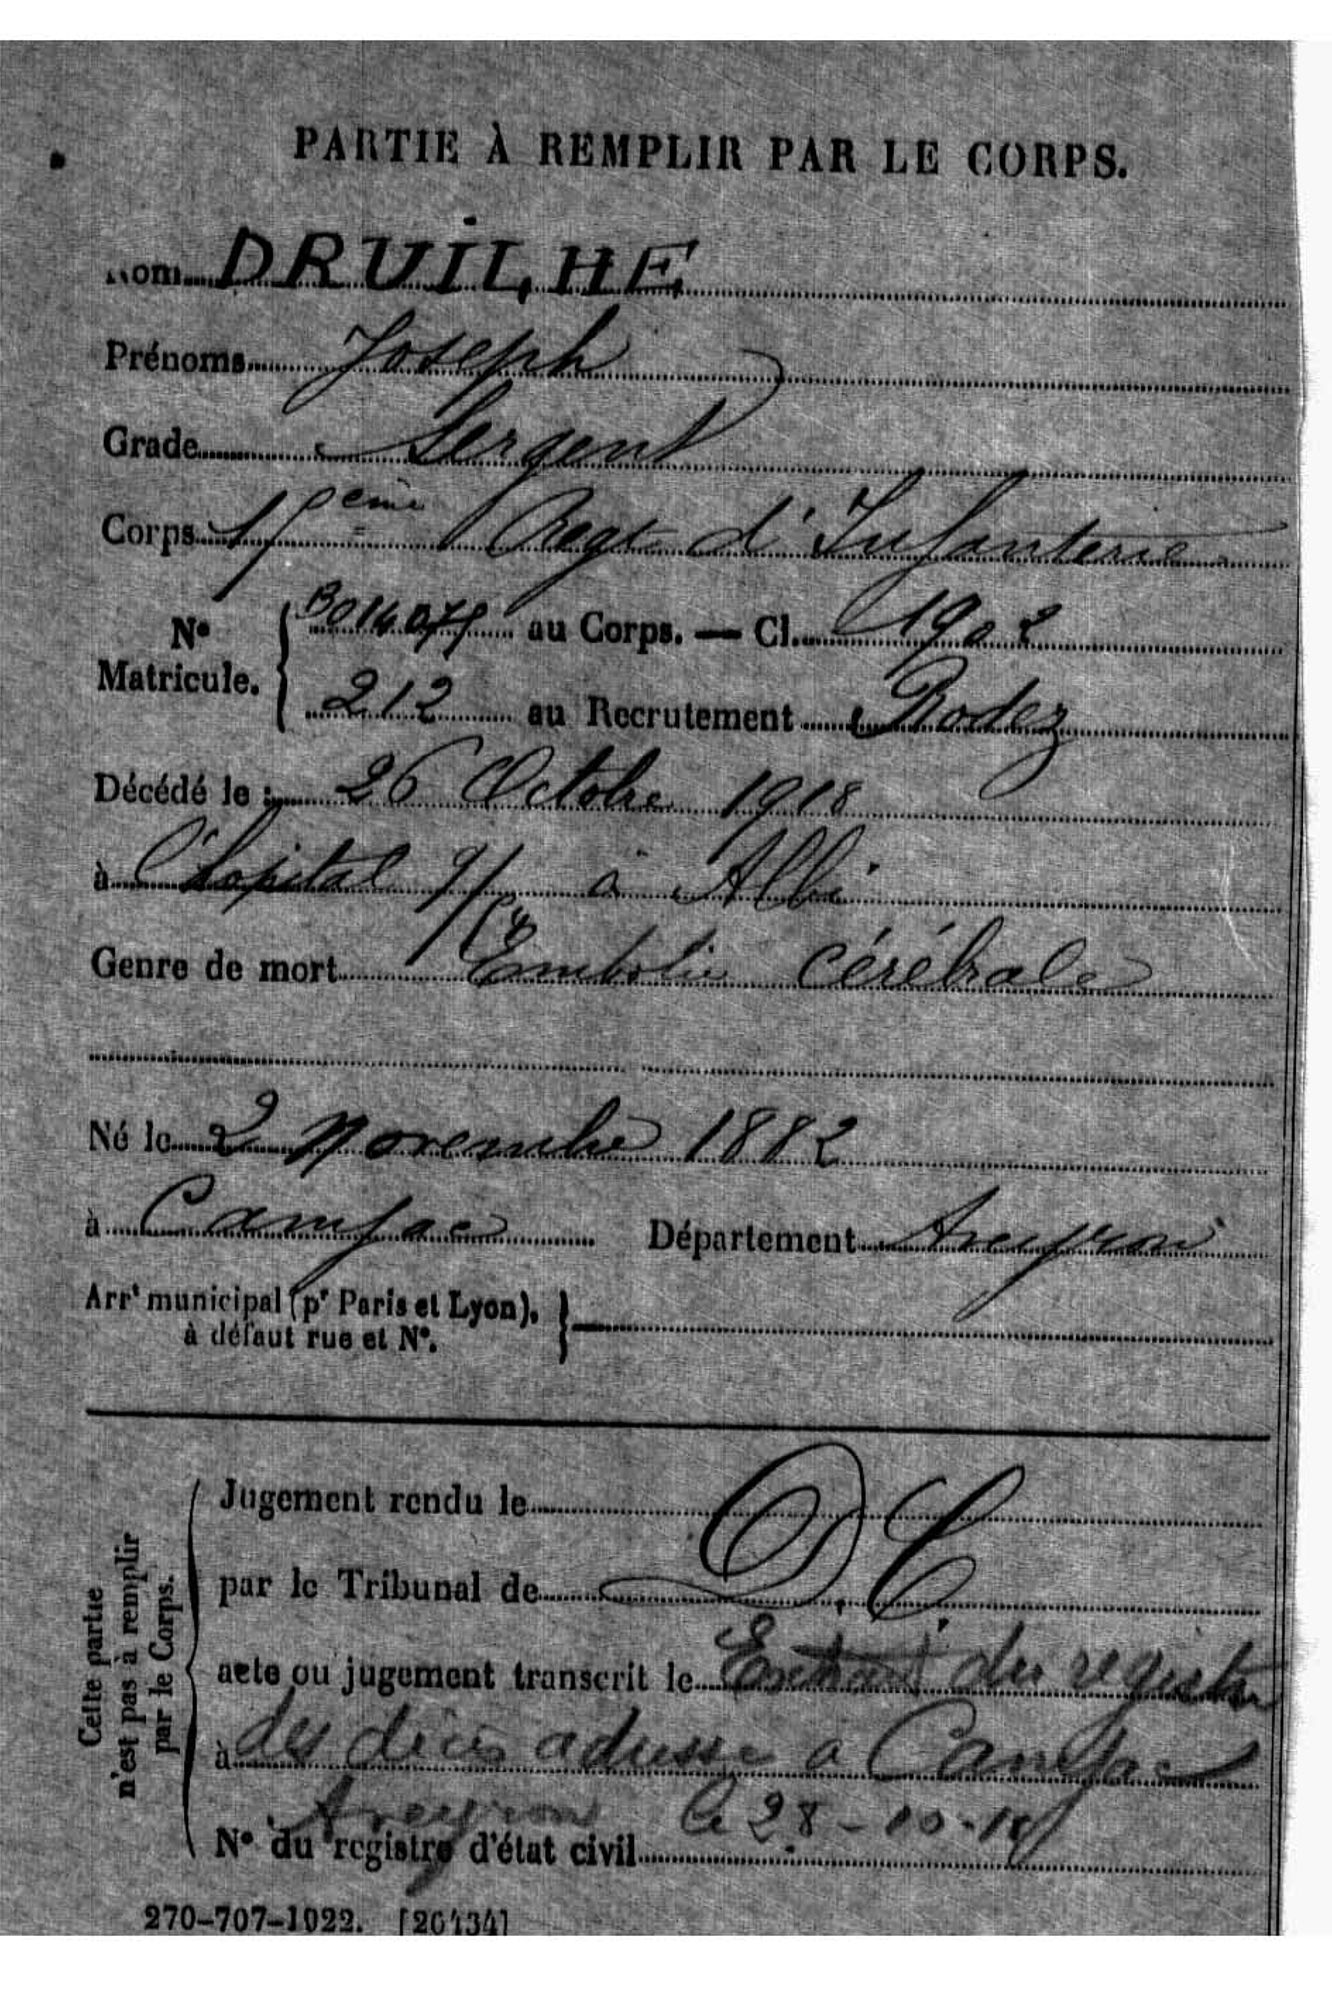 PARTIE À REMPLIR PAR LE CORPS.
Nom DRUILHE
Prénoms Joseph
Grade Sergent
Corps 15ème Regt d'Infanterie
No Matricule. au Corps. — Cl. 1902
212 au Recrutement Rodez
Décédé le : 26 Octobre 1918
à l'hopital à Albi
Genre de mort Embolie cérébrale
Né le 2 Novembre 1882
à Camjac Département Aveyron
Arrt municipal (pr Paris et Lyon),
à défaut rue et No.
Cette partie
n'est pas à remplir
par le Corps.
Jugement rendu le
par le Tribunal de D.C.
acte ou jugement transcrit le Extrait du registre
à des décès adressé a Camjac
Aveyron le 28-10-18
No du registre d'état civil
270-707-1922. [26434]